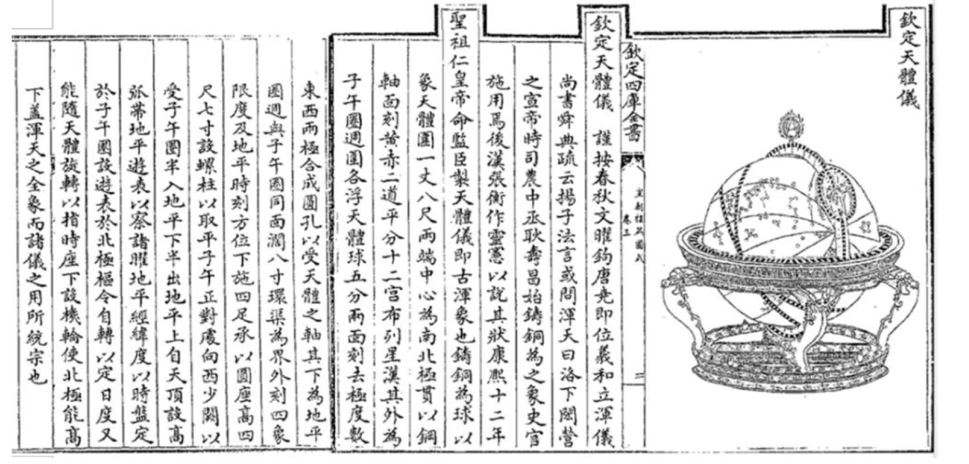 欽定天體儀
欽定四庫全書
皇朝禮器圖式
卷三
二
欽定天體儀 謹按春秋文曜鉤唐堯即位羲和立渾儀
尚書舜典疏云揚子法言或問渾天曰洛下閎營
之宣帝時司農中丞耿壽昌始鑄銅為之象史官
施用焉後漢張衡作靈憲以說其狀康熙十二年
聖祖仁皇帝命監臣製天體儀即古渾象也鑄銅為球以
象天體圍一丈八尺兩端中心為南北極貫以鋼
軸面刻黃赤二道平分十二宮布列星漢其外為
子午圈週圍各浮天體球五分兩面刻去極度數
東西兩極合成圓孔以受天體之軸其下為地平
圈週與子午圈同面濶八寸環渠為界外刻四象
限度及地平時刻方位下施四足承以圓座高四
尺七寸設螺柱以取平子午正對處向西少闕以
受子午圈半入地平下半出地平上自天頂設高
弧帶地平遊表以察諸曜地平經緯度以時盤定
於子午圈設遊表於北極樞令自轉以定日度又
能隨天體旋轉以指時座下設機輪使北極能高
下蓋渾天之全象而諸儀之用所統宗也